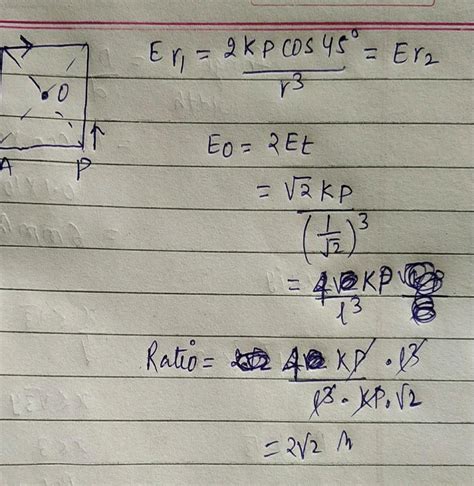 Er₁ = 2KP cos 45° / r³ = Er₂
O
E₀ = 2Et
A P
= √2 KP / (1/√2)³
= 4 KP / l³
Ratio = 4 KP · l³ / l³ · KP · √2
= 2√2